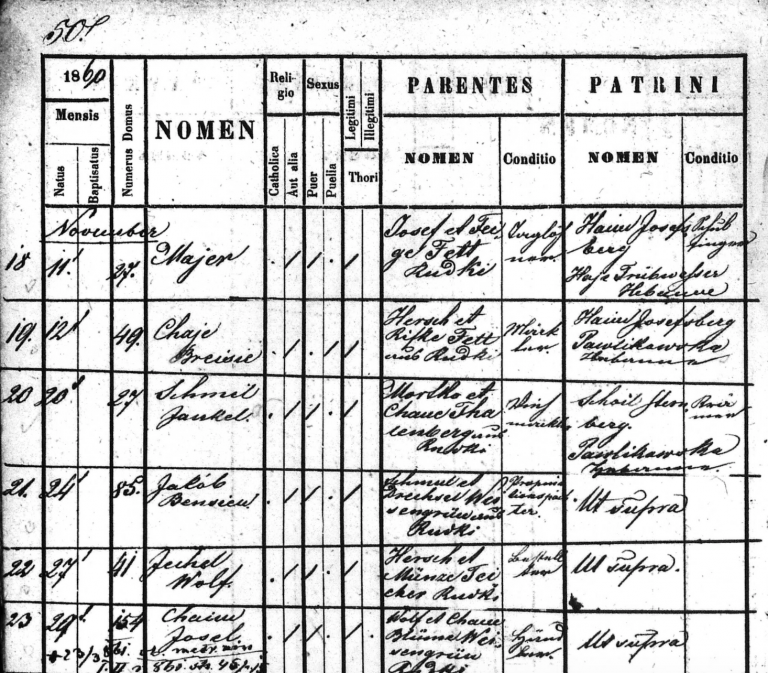 50.
1860
Mensis
Natus
Baptisatus
Numerus Domus
NOMEN
Religio
Catholica
Aut alia
Sexus
Puer
Puella
Legitimi
Illegitimi
Thori
PARENTES
NOMEN
Conditio
PATRINI
NOMEN
Conditio
November
18 11 27. Majer
Josef et Feige Fett
Rudki
Haim Josefsberg
Hebamme
19. 12 49. Chaje
Breisie
Hersch et
Rifke Fett
aus Rudki
Haim Josefsberg
Pawlikowska
Hebamme
20 20 27. Schmil
Jankel.
Mortko et
Chane Thalenberg aus
Rudki
Schoil Sternberg.
Pawlikowska
Hebamme.
21. 24 85. Jakób
Bension
Schmul et
Drechsel Weisengrün aus
Rudki
Ut supra
22 27 41 Jechel
Wolf.
Hersch et
Münze Teicher Rudki
Ut supra.
23 29 154 Chaim
Josel.
Wolf et Chane
Blüme Weisengrün
Rudki
Ut supra